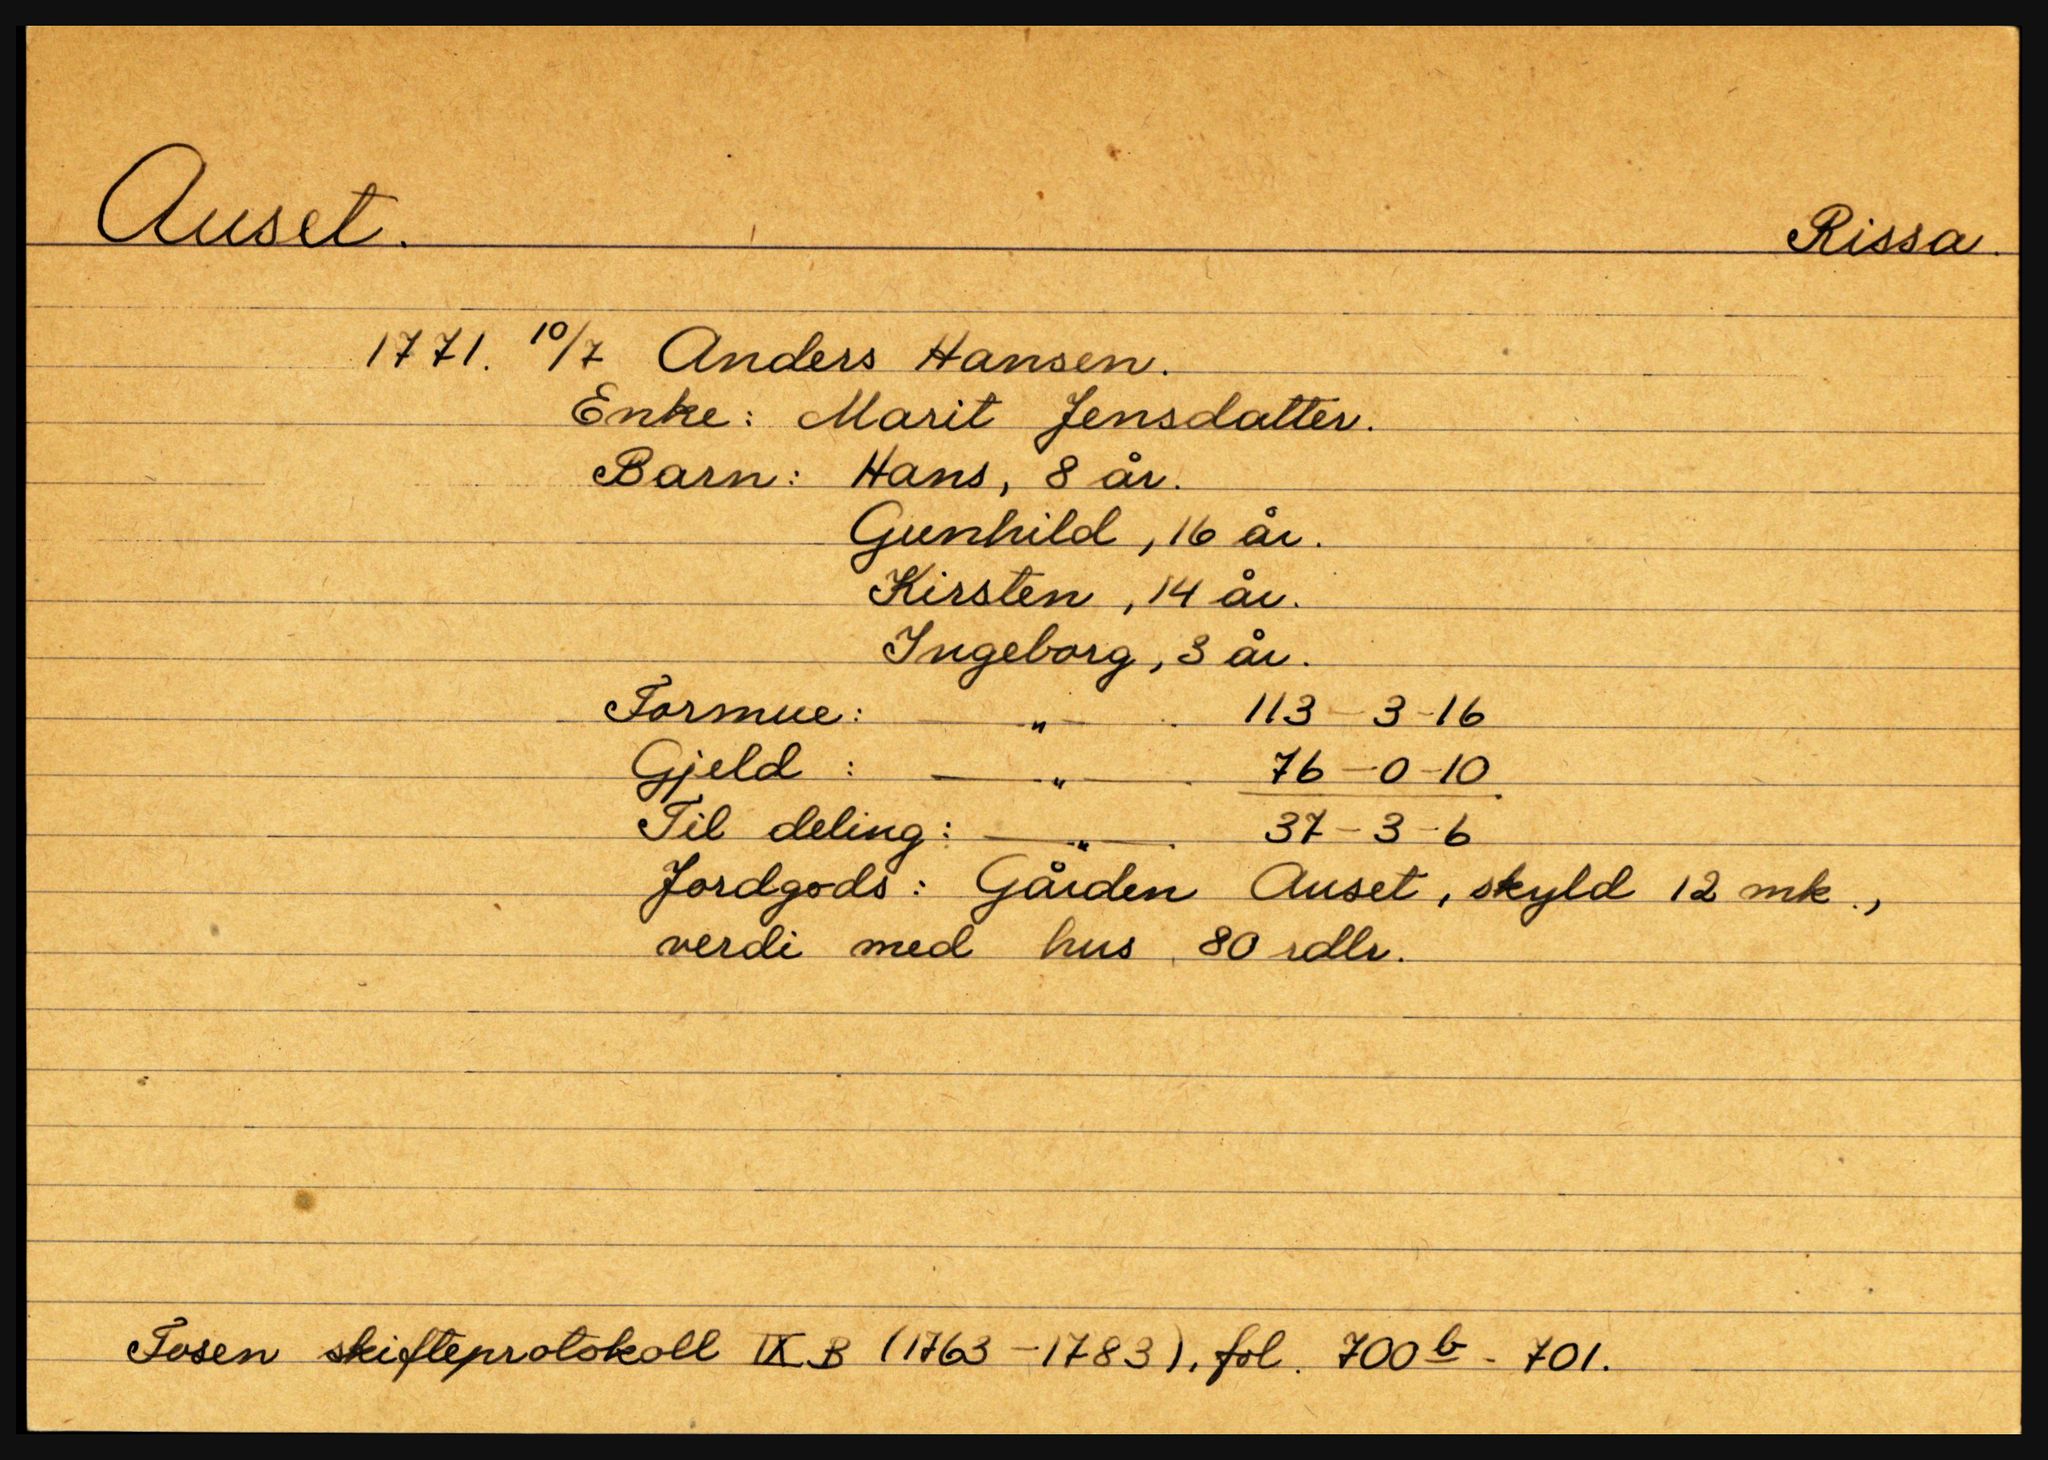 Auset. Rissa.
1771. 10/7 Anders Hansen.
Enke: Marit Jensdatter.
Barn: Hans, 8 år.
Gunhild, 16 år.
Kirsten, 14 år.
Ingeborg, 3 år.
Formue: — „ — . 113 - 3 - 16
Gjeld : — „ — . 76 - 0 - 10.
Til deling: — „ — . 37 - 3 - 6
Jordgods: Gården Auset, skyld 12 mk.,
verdi med hus 80 rdlr.
Fosen skifteprotokoll IX B (1763 - 1783), fol. 700 b - 701.